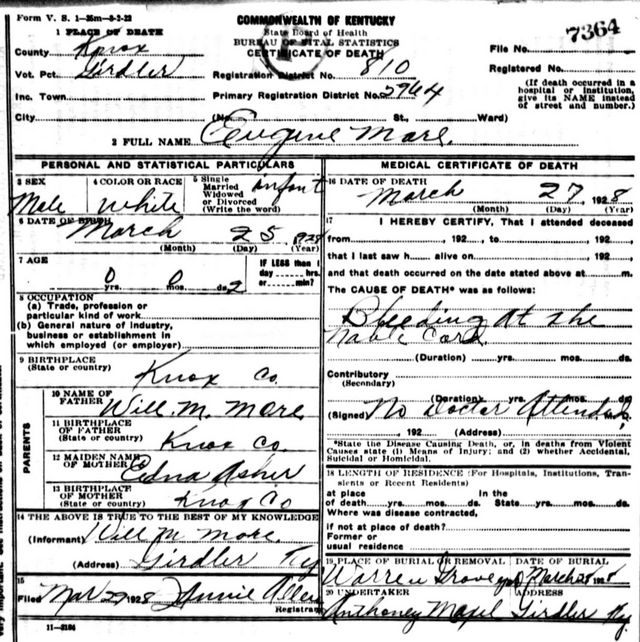 Form V. S. 1—35m—8-2-22
COMMONWEALTH OF KENTUCKY
State Board of Health
BUREAU OF VITAL STATISTICS
CERTIFICATE OF DEATH
7364
1 PLACE OF DEATH
County Knox
Vot. Pct. Girdler
Inc. Town
City
Registration District No. 810
Primary Registration District No. 2964
(No. St., Ward)
File No.
Registered No.
(If death occurred in a
hospital or institution,
give its NAME instead
of street and number.)
2 FULL NAME Eeugene More.
PERSONAL AND STATISTICAL PARTICULARS
3 SEX
Male
4 COLOR OR RACE
White
5 Single
Married
Widowed
or Divorced
(Write the word)
infant
6 DATE OF BIRTH
March 25 1928
(Month) (Day) (Year)
7 AGE
0 yrs. 0 mos. 2 ds.
IF LESS than 1
day hrs.
or min?
8 OCCUPATION
(a) Trade, profession or
particular kind of work
(b) General nature of industry,
business or establishment in
which employed (or employer)
9 BIRTHPLACE
(State or country)
Knox Co.
PARENTS
10 NAME OF
FATHER
Will. M. More
11 BIRTHPLACE
OF FATHER
(State or country)
Knox Co.
12 MAIDEN NAME
OF MOTHER
Edna Asher
13 BIRTHPLACE
OF MOTHER
(State or country)
Knox Co
14 THE ABOVE IS TRUE TO THE BEST OF MY KNOWLEDGE
(Informant) Will M More
(Address) Girdler Ky
15
Filed Mar 29 1928 Allen
Registrar
11—3184
MEDICAL CERTIFICATE OF DEATH
16 DATE OF DEATH
March 27 1928
(Month) (Day) (Year)
17 I HEREBY CERTIFY, That I attended deceased
from , 192 , to , 192 ,
that I last saw h alive on , 192 ,
and that death occurred on the date stated above at m.
The CAUSE OF DEATH* was as follows:
Bleeding at the
Nable Cord.
(Duration) yrs. mos. ds.
Contributory
(Secondary)
(Duration) yrs. mos. ds.
(Signed) No Doctor Attended
192 (Address)
*State the Disease Causing Death, or, in deaths from Violent
Causes state (1) Means of Injury; and (2) whether Accidental,
Suicidal or Homicidal.
18 LENGTH OF RESIDENCE (For Hospitals, Institutions, Tran-
sients or Recent Residents)
at place In the
of death yrs. mos. ds. State yrs. mos. ds.
Where was disease contracted,
if not at place of death?
Former or
usual residence
19 PLACE OF BURIAL OR REMOVAL
Warren Grove yard
DATE OF BURIAL
March 28 1928
20 UNDERTAKER
Anthoney
ADDRESS
Girdler Ky.